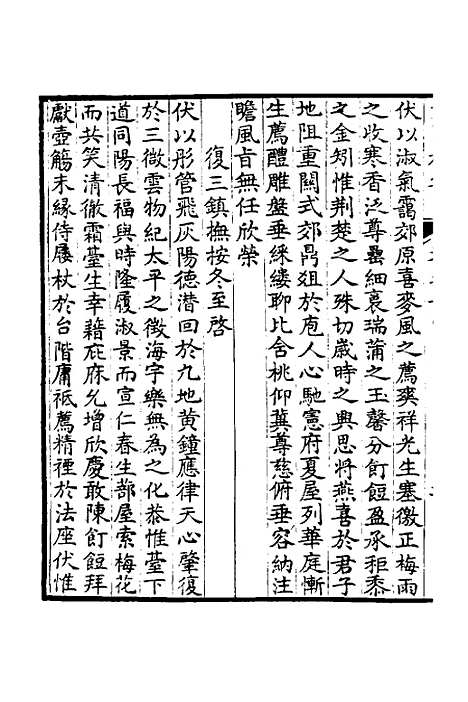 伏以淑氣靄郊原喜麥風之薦爽祥光生塞徼正梅雨
之收寒香泛尊罍細裛瑞蒲之玉馨分飣餖盈承秬黍
之金矧惟荆楚之人殊切歲時之興思將燕喜於君子
地阻重關式郊鼎俎於庖人心馳憲府夏屋列華庭慚
生薦醴雕盤垂綵縷聊比舍桃仰冀尊慈俯垂容納注
瞻風旨無任欣榮
復三鎮撫按冬至啓
伏以彤管飛灰陽德潛回於九地黄鐘應律天心肇復
於三微雲物紀太平之徵海宇樂無為之化恭惟臺下
道同陽長福與時隆履淑景而宣仁春生蔀屋索梅花
而共笑清徹霜臺生幸藉庇庥允增欣慶敢陳飣餖拜
獻壺觴未緣侍屨杖於台階庸祗薦精禋於法座伏惟